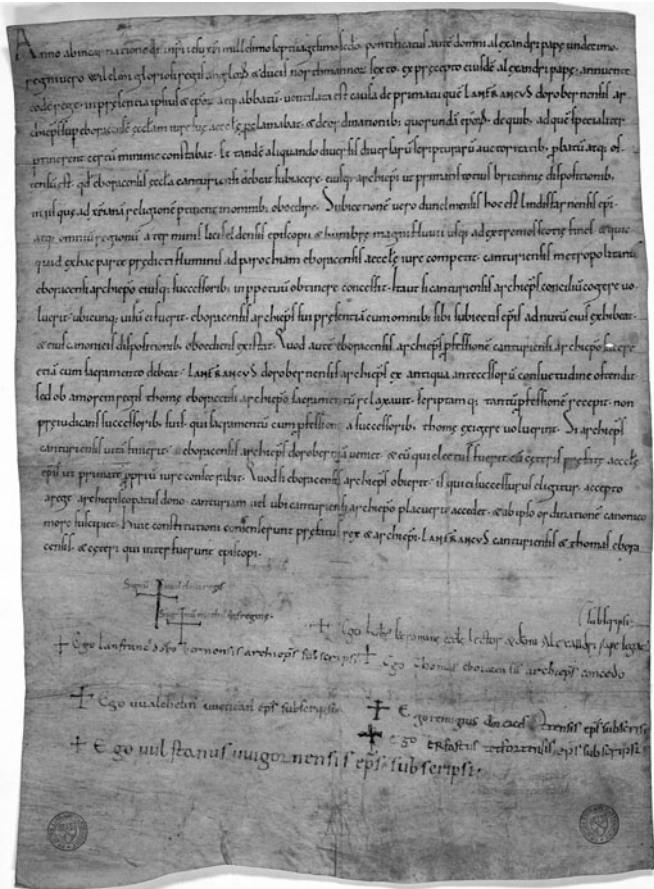 Anno ab incarnatione dñi nr̃i ihu xp̃i millesimo septuagesimo scd̃o. pontificatus autẽ domni alexandri papę undecimo.
regni uero uuilelmi gloriosi regis anglorũ & ducis northmannorũ sexto. ex precepto eiusdẽ alexandri papę. annuente
eodẽ rege. in presentia ipsius & ep̃orũ atq; abbatũ. uentilata est causa de primatu quẽ LANFRANCUS dorobernensis ar
chiep̃s sup eboracensẽ ęccłam iure suę ęcclę proclamabat. & de ordinationib; quorundã ep̃orũ. de quib; ad quẽ specialiter
pertinerent certũ minime constabat. Et tandẽ aliquando diuersis diuersarũ scripturarũ auctoritatib; probatũ atq; os
tensũ est. qđ eboracensis ęccła cantuariensi debeat subiacere. eiusq; archiep̃i ut primatis totius britannię dispositionib;
in iis quę ad xp̃ianã religionẽ pertinent in omnib; oboedire. Subiectionẽ uero dunelmensis hoc est lindisfarnensis ep̃i
atq; omniũ regionũ a terminis licifeldensis episcopii & humbrę magni fluuii usq; ad extremos scotię fines. & quic
quid ex hac parte predicti fluminis ad parochiam eboracensis ęcclesię iure competit. cantuariensis metropolitanus
eboracensi archiep̃o eiusq; successorib; in ppetuũ obtinere concessit. Ita ut si cantuariensis archiep̃s conciliũ cogere uo
luerit. ubicunq; uisũ ei fuerit. eboracensis archiep̃s sui presentiã cum omnib; sibi subiectis ep̃is ad nutũ eius exhibeat.
& eius canonicis dispositionib; oboediens existat. Quod autẽ eboracensis archiep̃s pfessionẽ cantuariensi archiep̃o facere
etiã cum sacramento debeat. LANFRANCUS dorobernensis archiep̃s ex antiqua antecessorũ consuetudine ostendit.
sed ob amorem regis thomę eboracensi archiep̃o sacramentũ relaxauit. scriptamq; tantũ pfessionẽ recepit. non
preiudicans successorib; suis. qui sacramentũ cum pfessione a successorib; thomę exigere uoluerint. Si archiep̃s
cantuariensis uitã finierit. eboracensis archiep̃s doroberniã ueniet. & eũ qui electus fuerit cũ cęteris prefatę ęcclę
ep̃is ut primatẽ ppriũ iure consecrabit. Quod si eboracensis archiep̃s obierit. is qui ei successurus eligitur. accepto
a rege archiepiscopatus dono. cantuariam uel ubi cantuariensi archiep̃o placuerit accedet. & ab ipso ordinationẽ canonico
more suscipiet. Huic constitutioni consenserunt prefatus rex & archiep̃i. LANFRANCUS cantuariensis & thomas ebora
censis. & ceteri qui interfuerunt episcopi.
Signũ uuilelmi regis
Signum mathildis reginę.
+ Ego hub̃tus sc̃ę romanę ęccłę lector & domni Alexandri papę legatus subscripsi.
+ Ego lanfrancus dorobernensis archiep̃s subscripsi.
+ Ego thomas eboracensis archiep̃s concedo
+ Ego uualchelinus uuentanus ep̃s subscripsi.
+ Ego remigius dorcacestrensis ep̃s subscripsi
+ Ego erfastus tetfortensis ep̃s subscripsi.
+ Ego uulstanus uuigornensis ep̃s subscripsi.